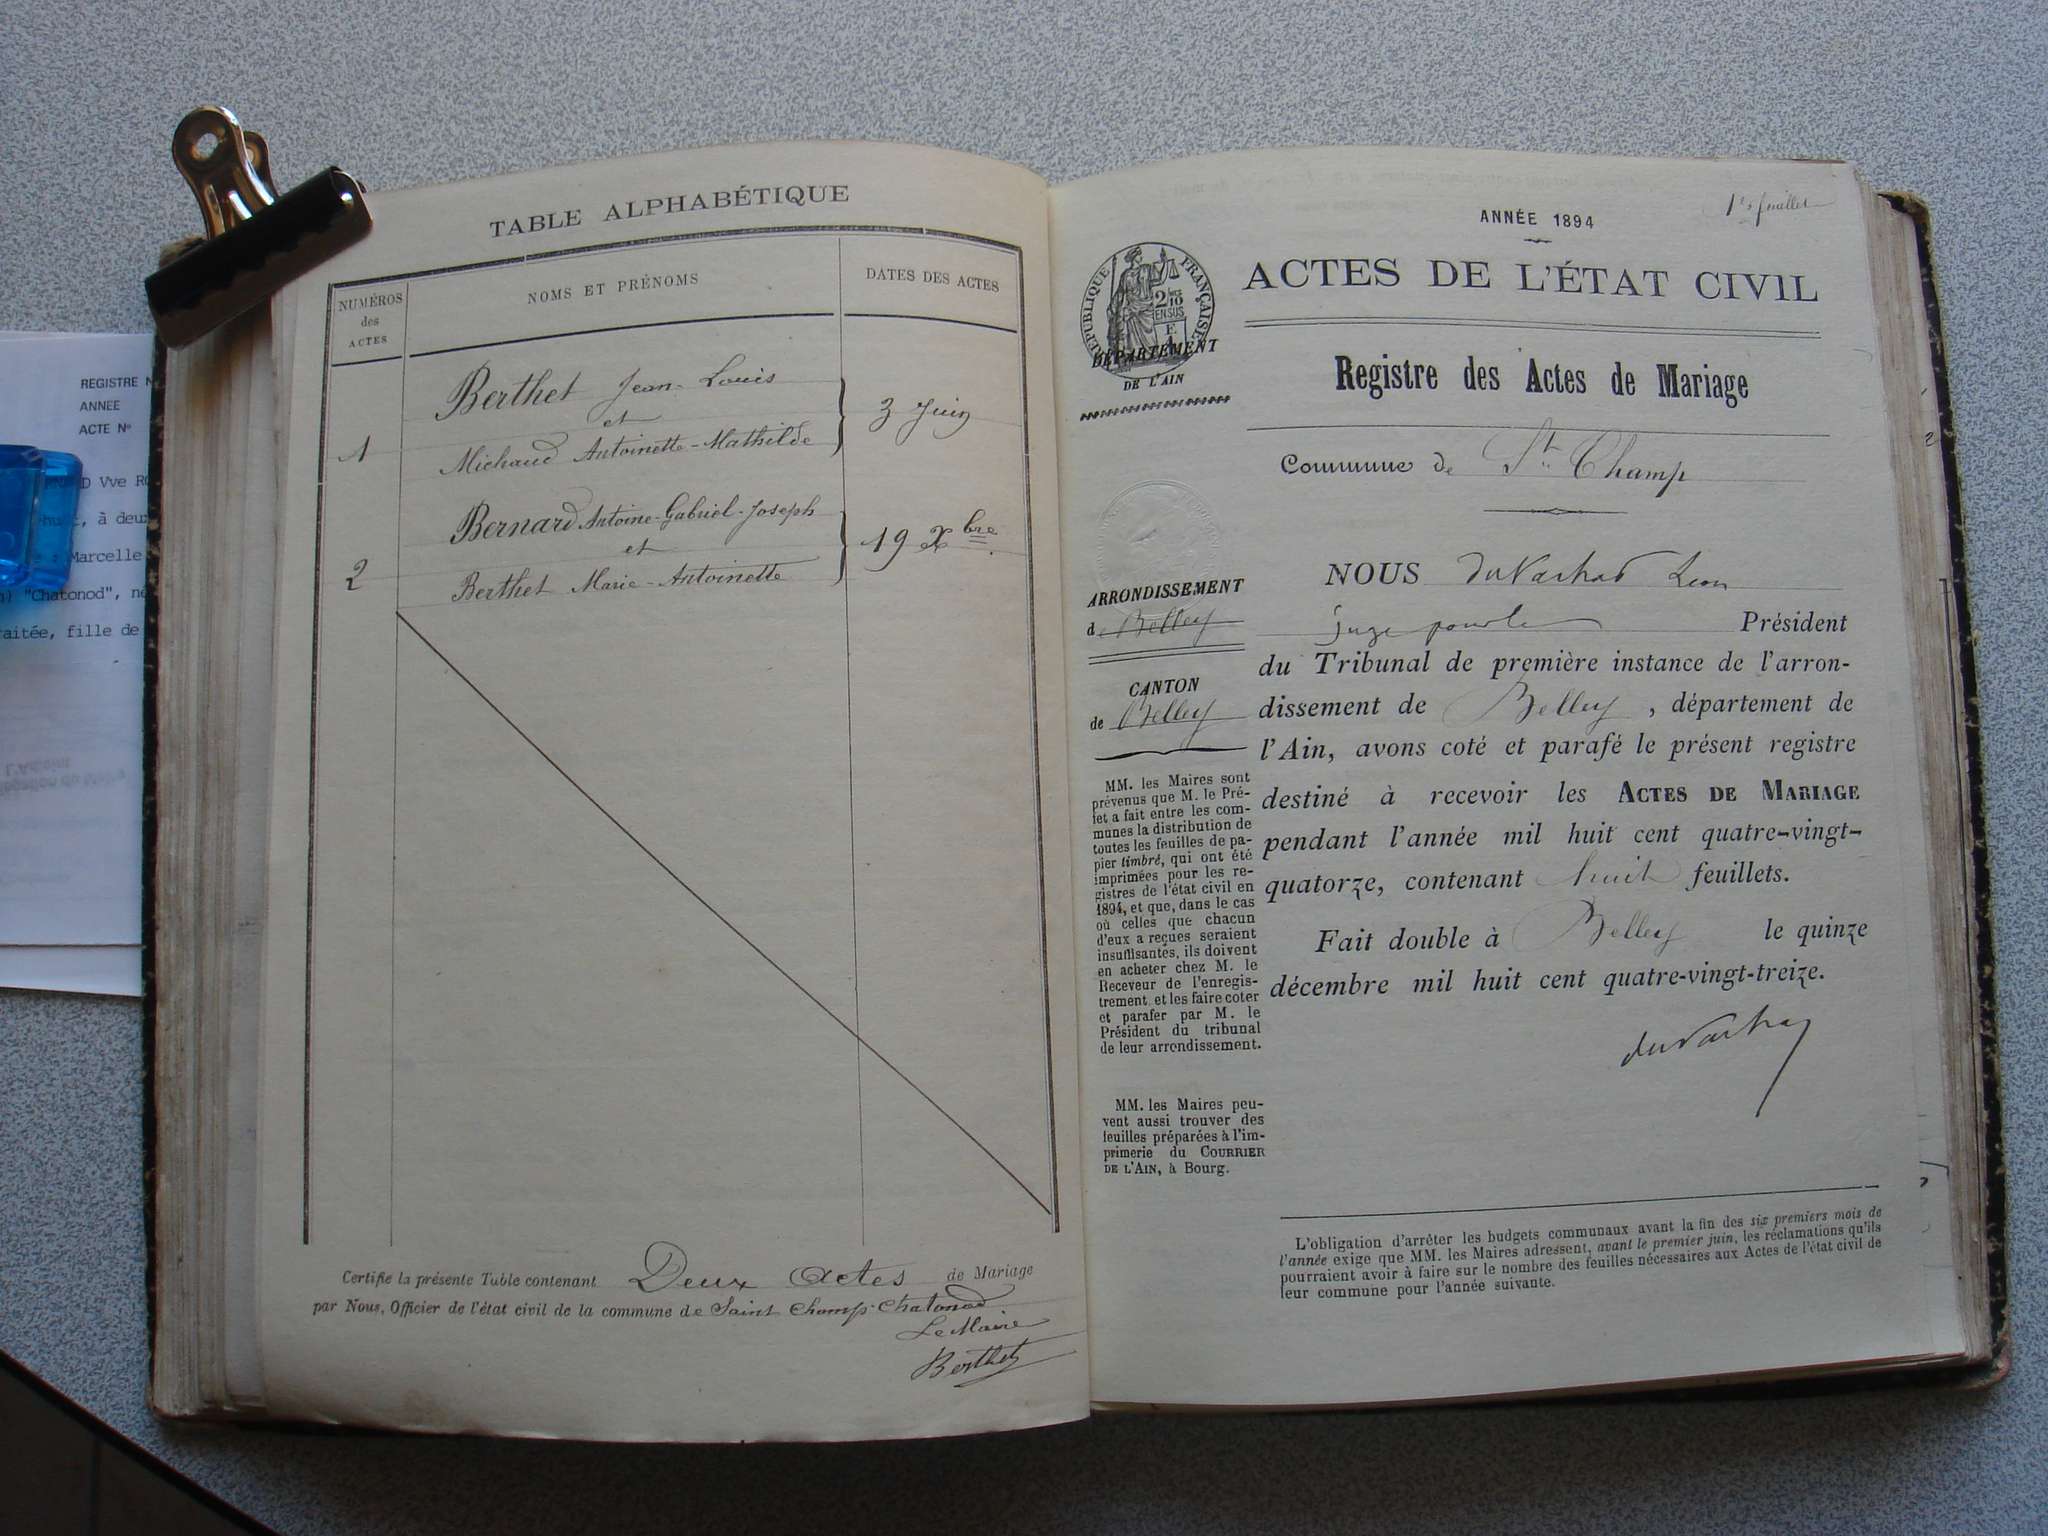 TABLE ALPHABÉTIQUE
NUMÉROS
des
ACTES
NOMS ET PRÉNOMS
DATES DES ACTES
Berthet Jean-Louis
et
1
Michaud Antoinette-Mathilde
3 Juin
Bernard Antoine-Gabriel-Joseph
et
2
Berthet Marie-Antoinette
19 Xbre
Certifie la présente Table contenant Deux Actes de Mariage
par Nous, Officier de l'état civil de la commune de Saint Champ-Chatonod
Le Maire
Berthet
1er feuillet
ANNÉE 1894
ACTES DE L'ÉTAT CIVIL
Registre des Actes de Mariage
Commune de St Champ
RÉPUBLIQUE FRANÇAISE
2/10
EN SUS
DÉPARTEMENT
DE L'AIN
ARRONDISSEMENT
de Belley
CANTON
de Belley
MM. les Maires sont
prévenus que M. le Pré-
fet a fait entre les com-
munes la distribution de
toutes les feuilles de pa-
pier timbré, qui ont été
imprimées pour les re-
gistres de l'état civil en
1894, et que, dans le cas
où celles que chacun
d'eux a reçues seraient
insuffisantes, ils doivent
en acheter chez M. le
Receveur de l'enregis-
trement et les faire coter
et parafer par M. le
Président du tribunal
de leur arrondissement.
MM. les Maires peu-
vent aussi trouver des
feuilles préparées à l'im-
primerie du COURRIER
DE L'AIN, à Bourg.
NOUS Léon
juge pour le Président
du Tribunal de première instance de l'arron-
dissement de Belley, département de
l'Ain, avons coté et parafé le présent registre
destiné à recevoir les ACTES DE MARIAGE
pendant l'année mil huit cent quatre-vingt-
quatorze, contenant huit feuillets.
Fait double à Belley le quinze
décembre mil huit cent quatre-vingt-treize.
L'obligation d'arrêter les budgets communaux avant la fin des six premiers mois de
l'année exige que MM. les Maires adressent, avant le premier juin, les réclamations qu'ils
pourraient avoir à faire sur le nombre des feuilles nécessaires aux Actes de l'état civil de
leur commune pour l'année suivante.
REGISTRE N
ANNEE
ACTE N°
D Vve RO
, à deux
Marcelle
"Chatonod", né
raitée, fille de